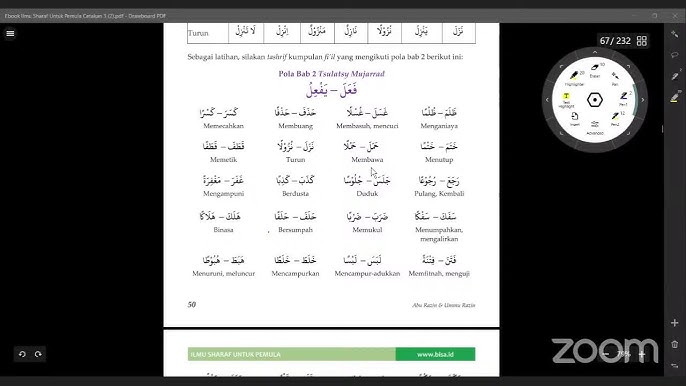 Ebook Ilmu Sharaf Untuk Pemula Cetakan 3 (2).pdf - Drawboard PDF
67 / 232
Turun نَزَلَ يَنْزِلُ نُزُوْلًا نَازِلٌ مَنْزُوْلٌ اِنْزِلْ لَا تَنْزِلْ
Sebagai latihan, silakan tashrif kumpulan fi'il yang mengikuti pola bab 2 berikut ini:
Pola Bab 2 Tsulatsy Mujarrad
فَعَلَ – يَفْعِلُ
ظَلَمَ – ظُلْمًا غَسَلَ – غُسْلًا حَذَفَ – حَذْفًا كَسَرَ – كَسْرًا
Memecahkan Membuang Membasuh, mencuci Menganiaya
خَتَمَ – خَتْمًا حَمَلَ – حَمْلًا نَزَلَ – نُزُوْلًا قَطَفَ – قَطْفًا
Memetik Turun Membawa Menutup
رَجَعَ – رُجُوْعًا جَلَسَ – جُلُوْسًا كَذَبَ – كَذِبًا غَفَرَ – مَغْفِرَةً
Mengampuni Berdusta Duduk Pulang, Kembali
سَفَكَ – سَفْكًا ضَرَبَ – ضَرْبًا حَلَفَ – حَلْفًا هَلَكَ – هَلَاكًا
Binasa Bersumpah Memukul Menumpahkan,
mengalirkan
فَتَنَ – فِتْنَةً لَبَسَ – لَبْسًا خَلَطَ – خَلْطًا هَبَطَ – هُبُوْطًا
Menuruni, meluncur Mencampurkan Mencampur-adukkan Memfitnah, menguji
50 Abu Razin & Ummu Razin
ILMU SHARAF UNTUK PEMULA www.bisa.id
Highlighter
Eraser
Pen
Text Highlight
Pen1
Insert
Pen2
Advanced
79%
zoom